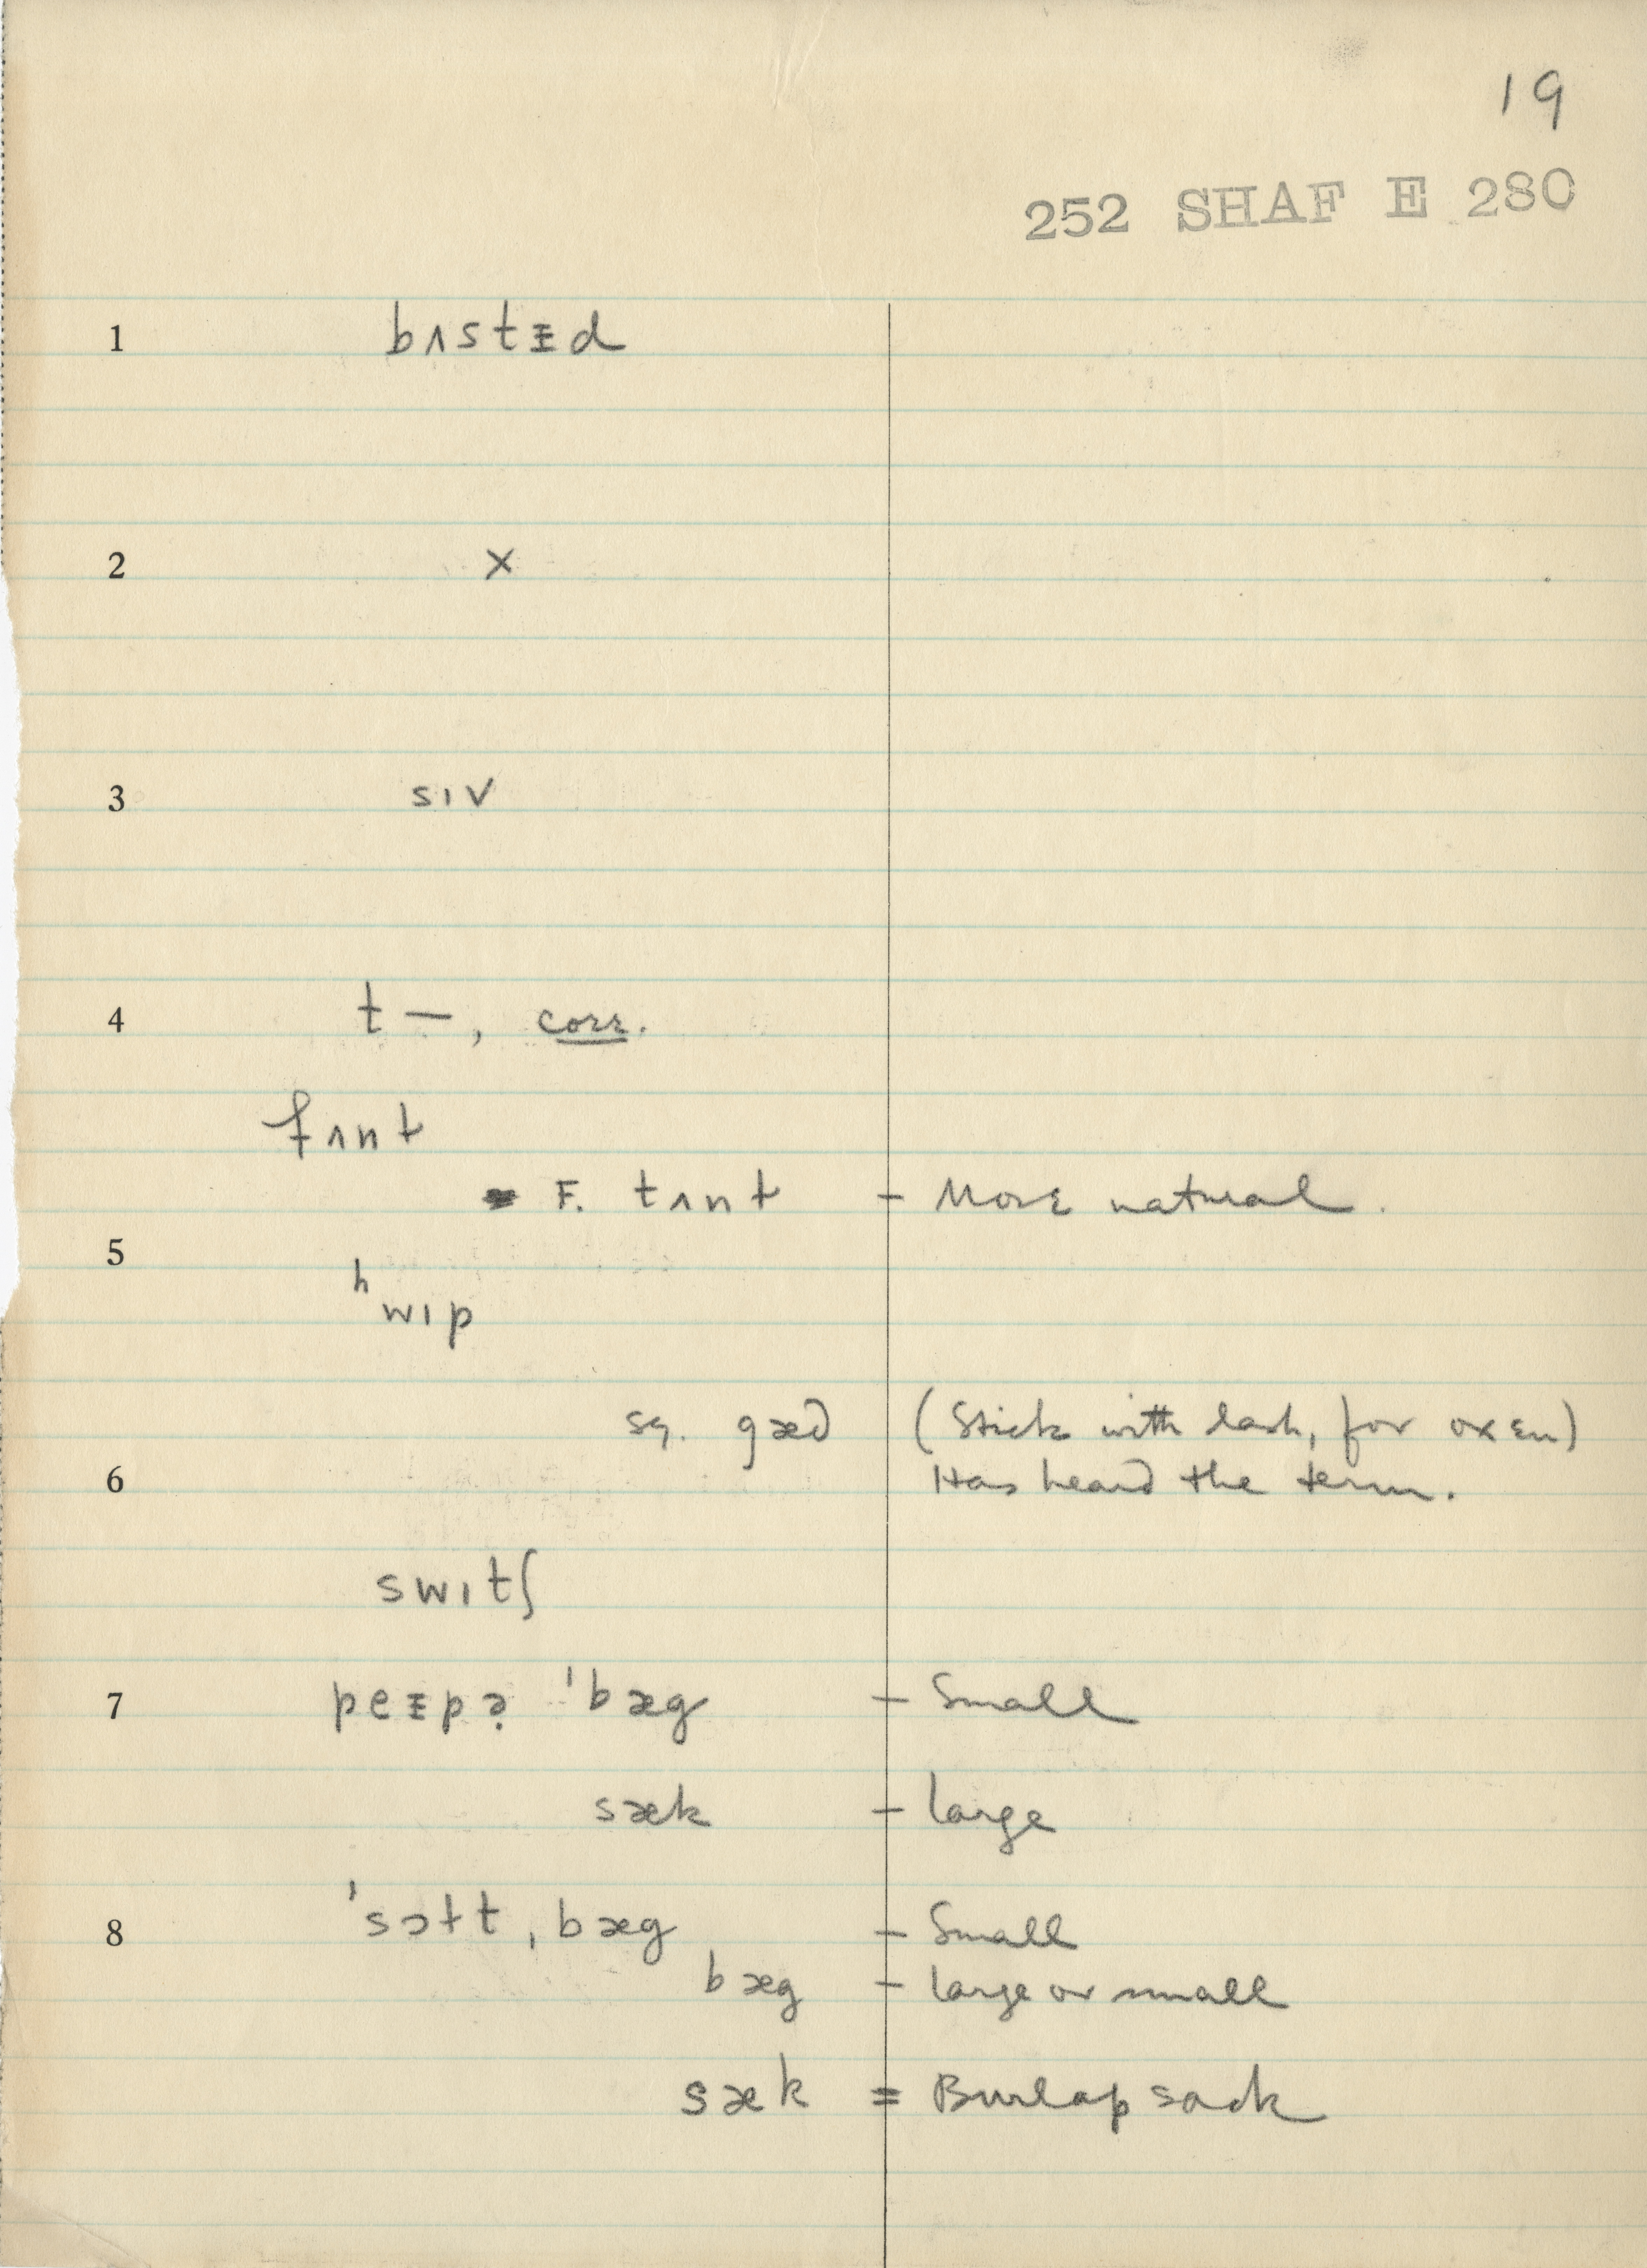 19
252 SHAF E 280
1 bʌstᵻd
2 ×
3 sɪv
4 t —, corr.
fʌnt
F. tʌnt — More natural.
5
ʰwɪp
sg. gæd (Stick with lash, for oxen)
6 Has heard the term.
swɪtʃ
7 peᵻpə̣ ˈbæg — Small
sæk — large
8 ˈsɔɫt ˌbæg — Small
bæg — large or small
sæk = Burlap sack